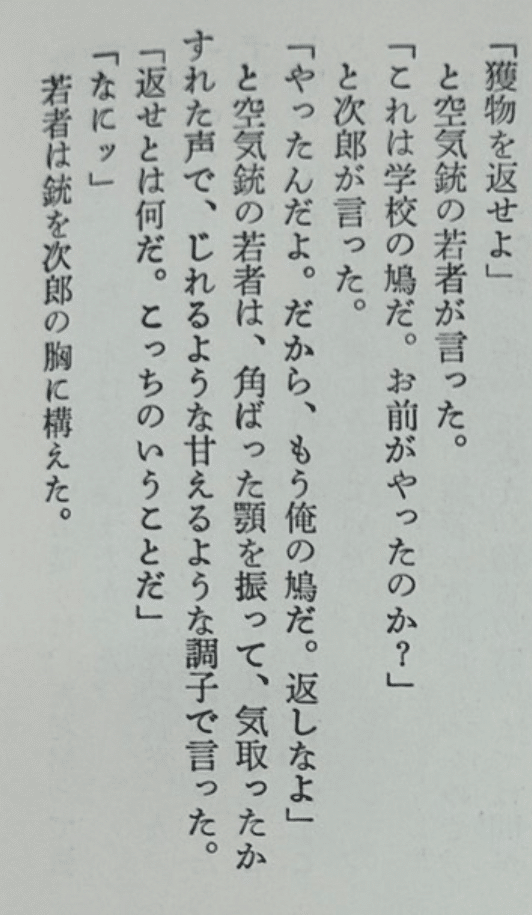 「獲物を返せよ」
と空気銃の若者が言った。
「これは学校の鳩だ。お前がやったのか？」
と次郎が言った。
「やったんだよ。だから、もう俺の鳩だ。返しなよ」
と空気銃の若者は、角ばった顎を振って、気取ったか
すれた声で、じれるような甘えるような調子で言った。
「返せとは何だ。こっちのいうことだ」
「なにッ」
若者は銃を次郎の胸に構えた。